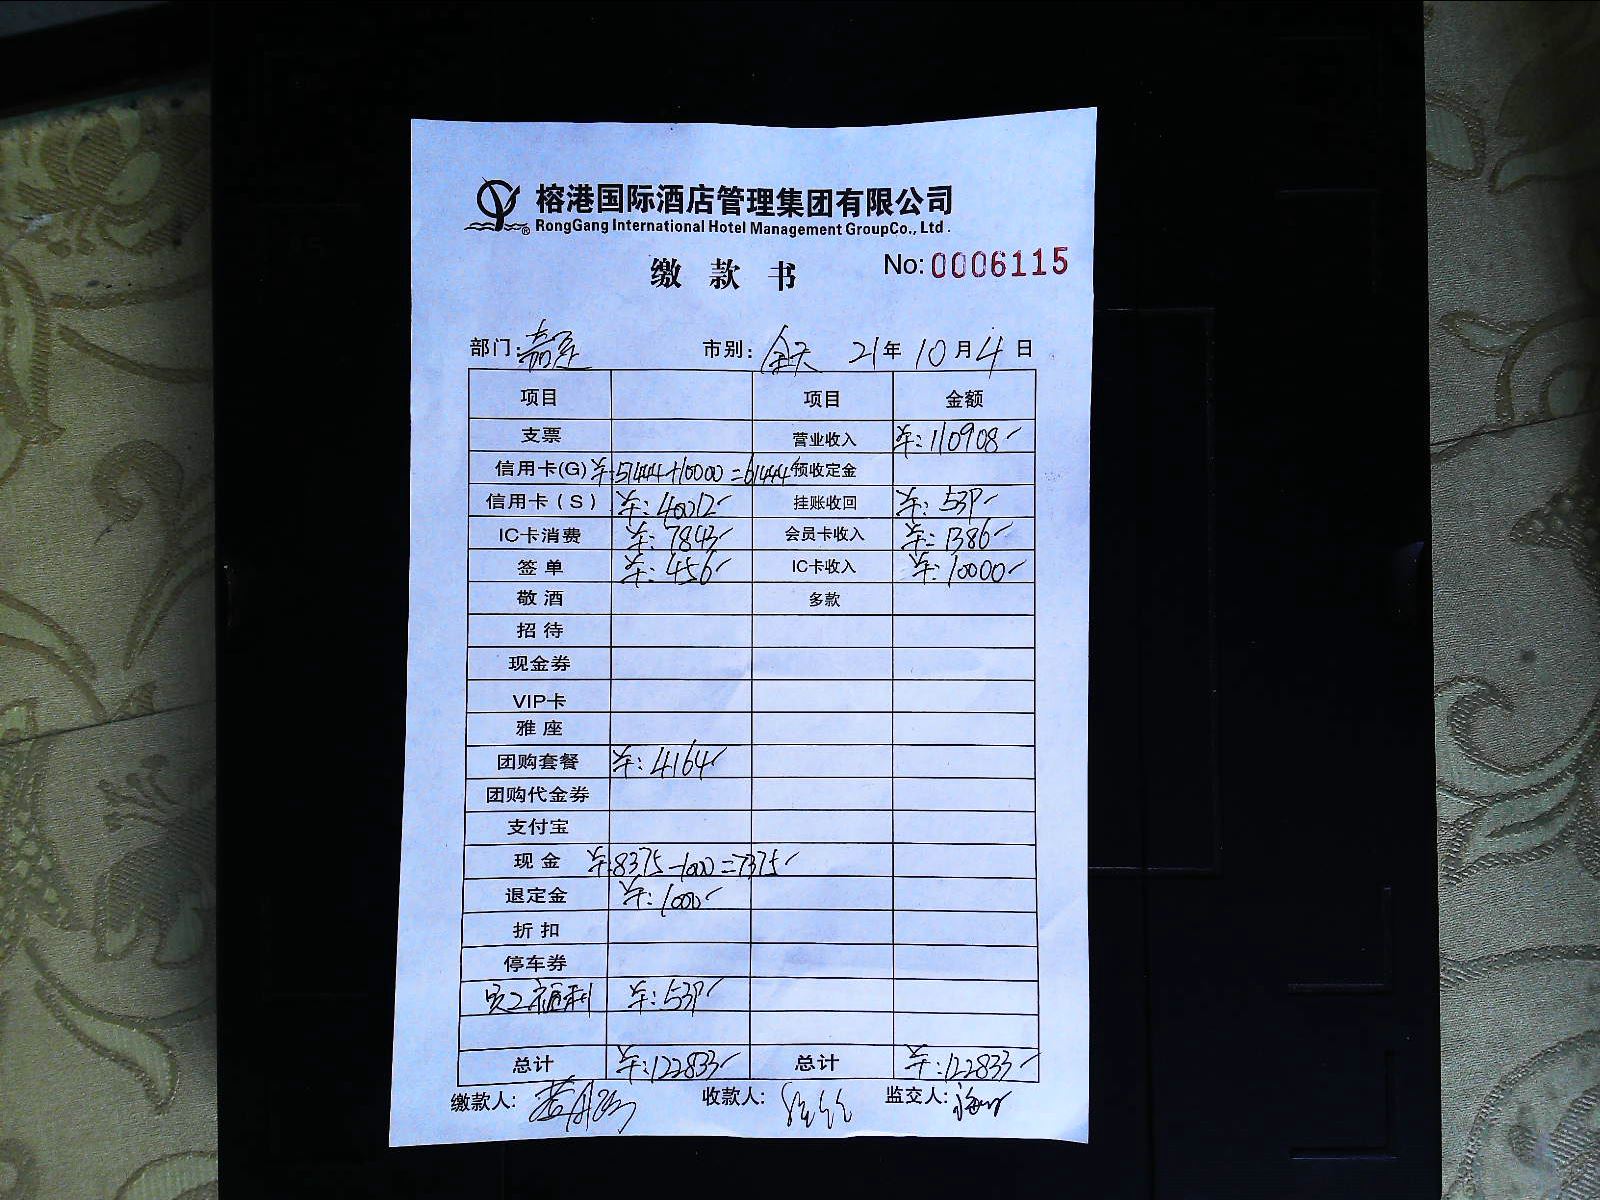 榕港国际酒店管理集团有限公司
RongGang International Hotel Management GroupCo., Ltd.
缴款书 No: 0006115
部门: 市别: 全天 21年 10月 4日
项目 项目 金额
支票 营业收入 ¥: 110908
信用卡(G) ¥: 51444+10000=61444 预收定金
信用卡(S) ¥: 40012 挂账收回 ¥: 539
IC卡消费 ¥: 7843 会员卡收入 ¥: 1386
签单 ¥: 456 IC卡收入 ¥: 10000
敬酒 多款
招待
现金券
VIP卡
雅座
团购套餐 ¥: 4164
团购代金券
支付宝
现金 ¥: 8375-1000=7375
退定金 ¥: 1000
折扣
停车券
员工福利 ¥: 539
总计 ¥: 122833 总计 ¥: 122833
缴款人: 收款人: 监交人: